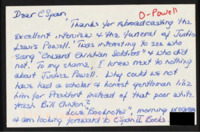 D-Powell
Dear C-Span,
Thanks for rebroadcasting the
excellent interview & the funeral of Justice
Lewis Powell. I was interested to see who
sang "Onward Christian Soldiers" & who did
not. To my shame, I knew next to nothing
about Justice Powell. Why could we not
have had a scholar & honest gentleman like
him for President instead of that poor white
trash Bill Clinton?
Love Booknotes, morning program
& am looking forward to C-Span II Books